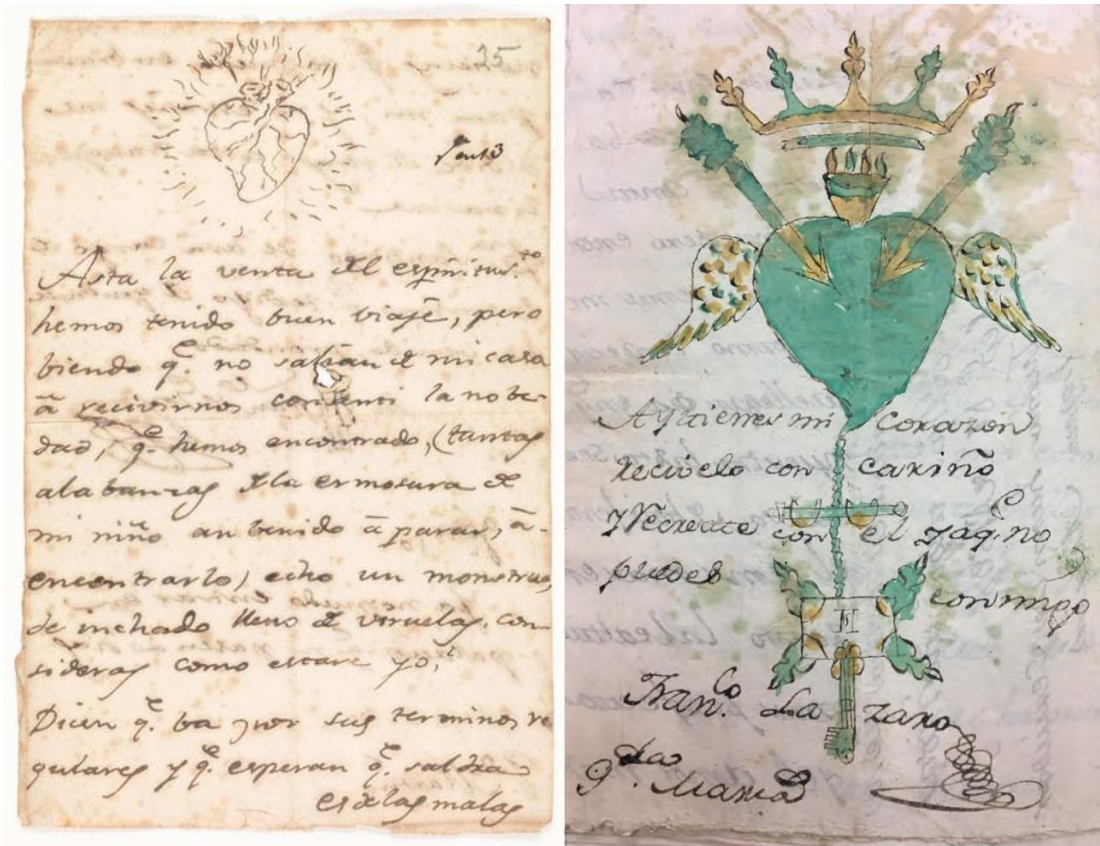 25
Asta la venta del espiritus.to
hemos tenido buen viaje, pero
biendo q.e no salian de mi casa
â recivirnos consenti la nobe-
dad, q.e hemos encontrado, (tantas
alabanzas de la ermosura de
mi niño an benido â parar, â-
encontrarlo) echo un monstruo,
de inchado lleno de viruelas, con-
sideras como estare yo,
Dicen q.e ba por sus terminos re
gulares y q.e esperan q.e saldra
es de las malas
Ay tienes mi Corazon
recivelo con cariño
Y Recreate con el ya q.e no
puedes conmigo
Fran.co La zaro
g.da Maria